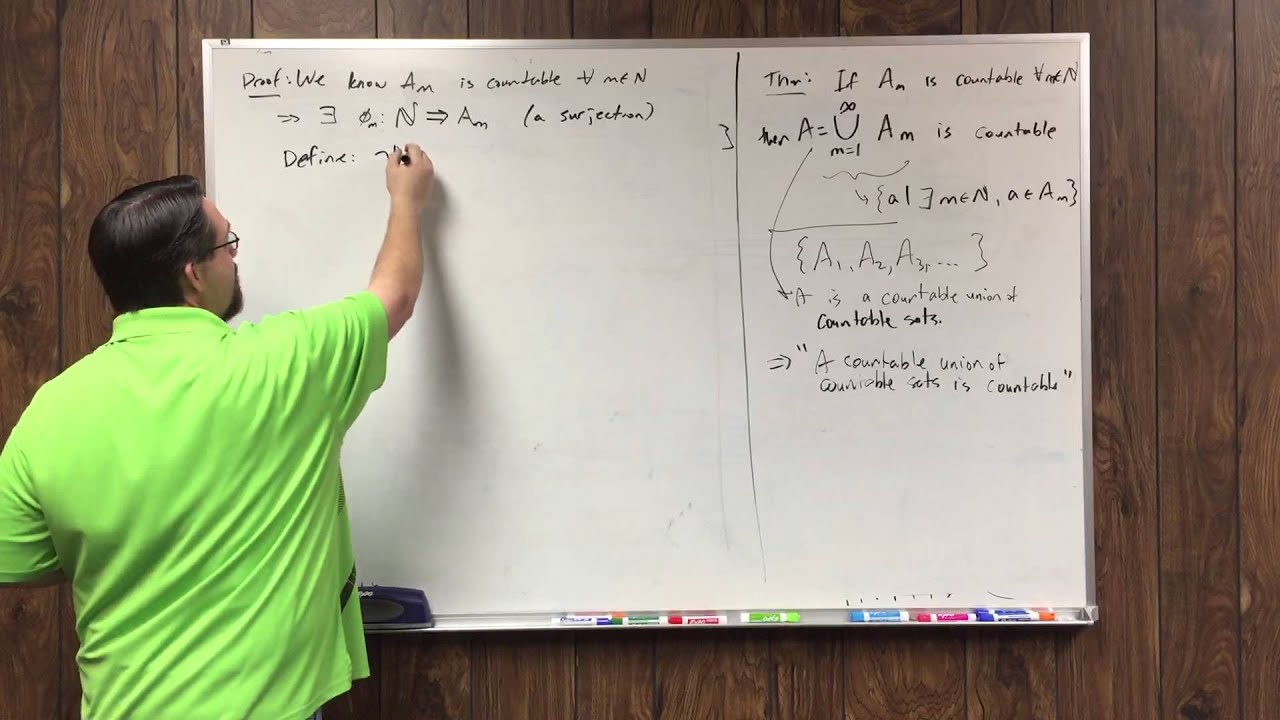 Proof: We know Am is countable ∀ m∈ℕ
⇒ ∃ ϕm: ℕ ⇒ Am (a surjection)
Define:
Thm: If Am is countable ∀m∈ℕ
then A = ∞⋃m=1 Am is countable
↳ {a | ∃ m∈ℕ, a∈Am}
{A1, A2, A3, ... }
A is a countable union of
countable sets.
⇒ "A countable union of
countable sets is countable"